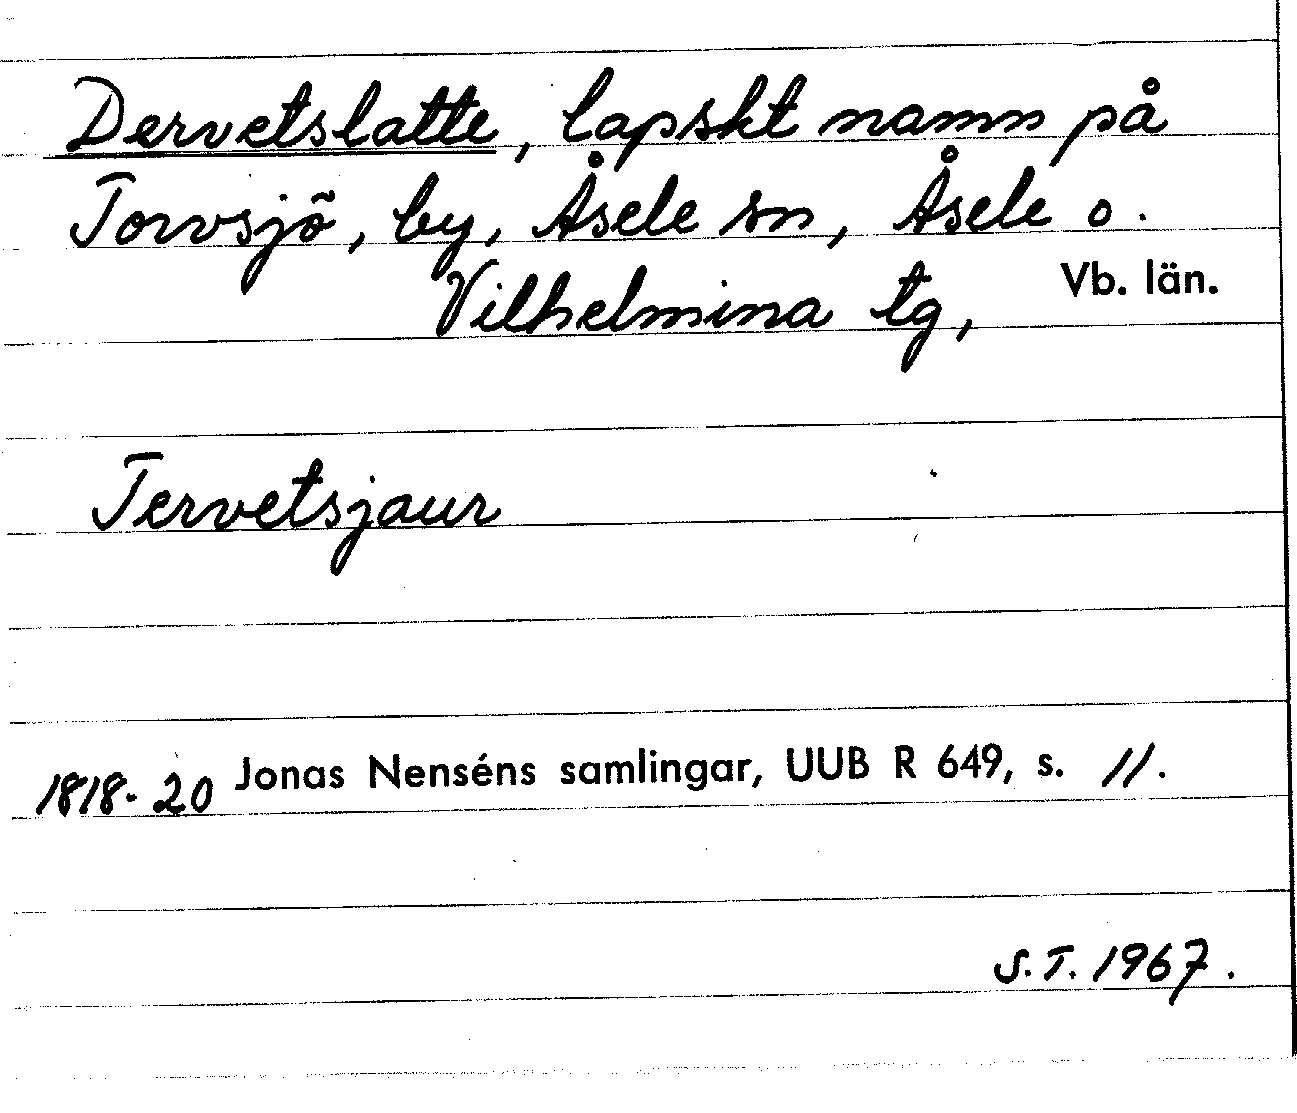 Dervetslatte, lapskt namn på
Torvsjö, by, Åsele sn, Åsele o.
Vilhelmina tg, Vb. län.
Tervetsjaur
1818-20 Jonas Nenséns samlingar, UUB R 649, s. 11.
S.T. 1967.